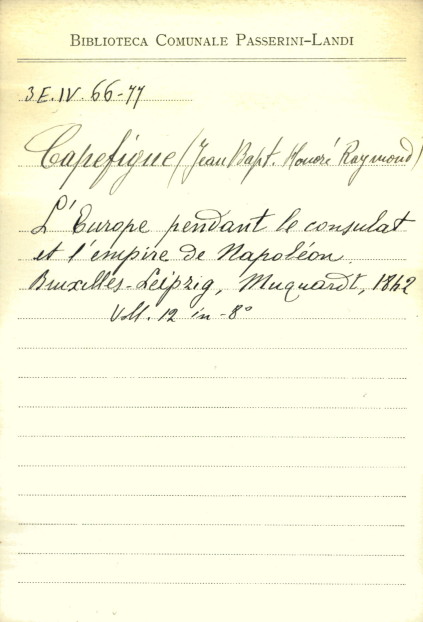 BIBLIOTECA COMUNALE PASSERINI-LANDI
3E.IV.66-77
Capefigue (Jean Bapt. Honoré Raymond)
L'Europe pendant le consulat
et l'empire de Napoléon.
Bruxelles-Leipzig, Muquardt, 1842
Voll. 12 in-8°